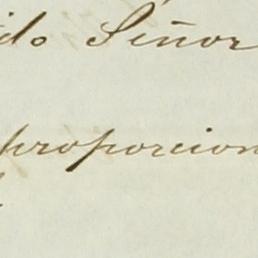 ido Señor
proporcion